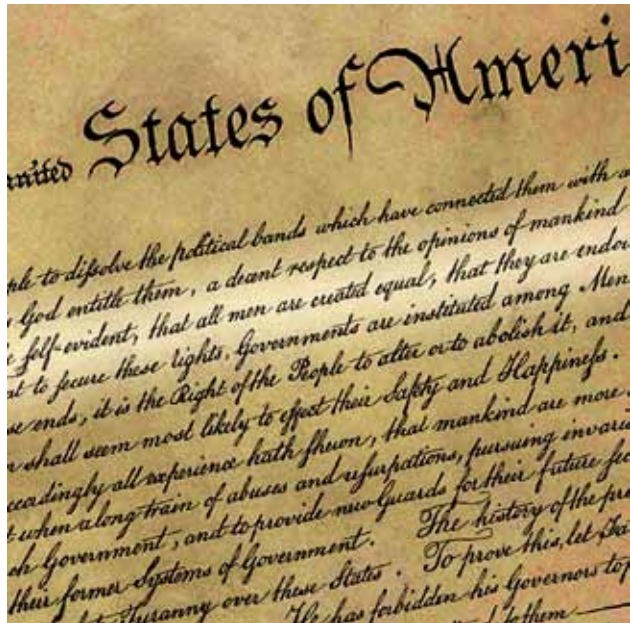 united States of Ameri
ple to diſsolve the political bands which have connected them with a
God entitle them, a decent respect to the opinions of mankind
ſelf-evident, that all men are created equal, that they are endow
at to ſecure these rights, Governments are instituted among Men
se ends, it is the Right of the People to alter or to abolish it, and
shall seem most likely to effect their Safety and Happineſs.
ccordingly all experience hath ſhewn, that mankind are more
t when a long train of abuses and uſurpations, pursuing invaria
ch Government, and to provide new Guards for their future ſec
their former Systems of Government. The history of the pre
Tyranny over these States. To prove this, let Fa
He has forbidden his Governors to p
to them —